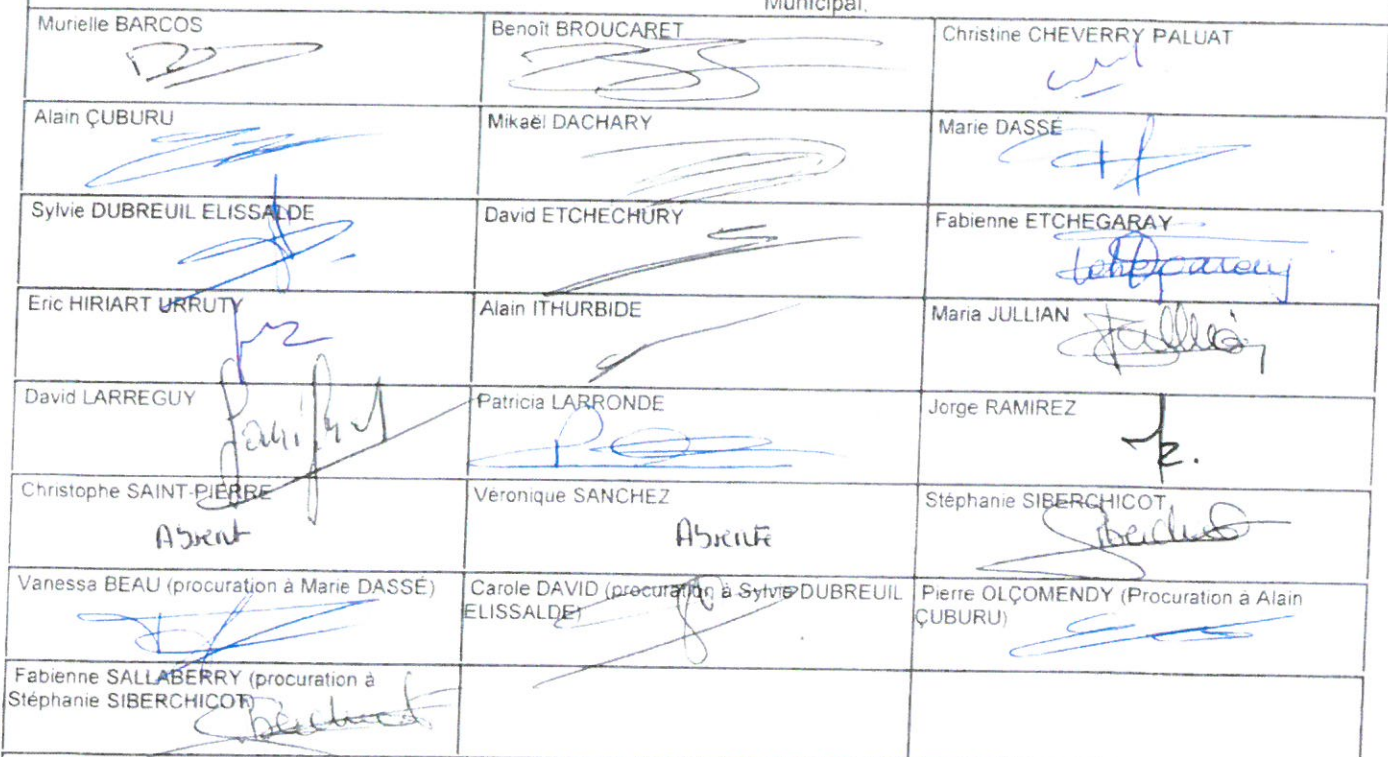 Municipal.
Murielle BARCOS
Benoît BROUCARET
Christine CHEVERRY PALUAT
Alain ÇUBURU
Mikaël DACHARY
Marie DASSÉ
Sylvie DUBREUIL ELISSALDE
David ETCHECHURY
Fabienne ETCHEGARAY
Eric HIRIART URRUTY
Alain ITHURBIDE
Maria JULLIAN
David LARREGUY
Patricia LARRONDE
Jorge RAMIREZ
Christophe SAINT-PIERRE
Absent
Véronique SANCHEZ
Absente
Stéphanie SIBERCHICOT
Vanessa BEAU (procuration à Marie DASSÉ)
Carole DAVID (procuration à Sylvie DUBREUIL
ELISSALDE)
Pierre OLÇOMENDY (Procuration à Alain
ÇUBURU)
Fabienne SALLABERRY (procuration à
Stéphanie SIBERCHICOT)